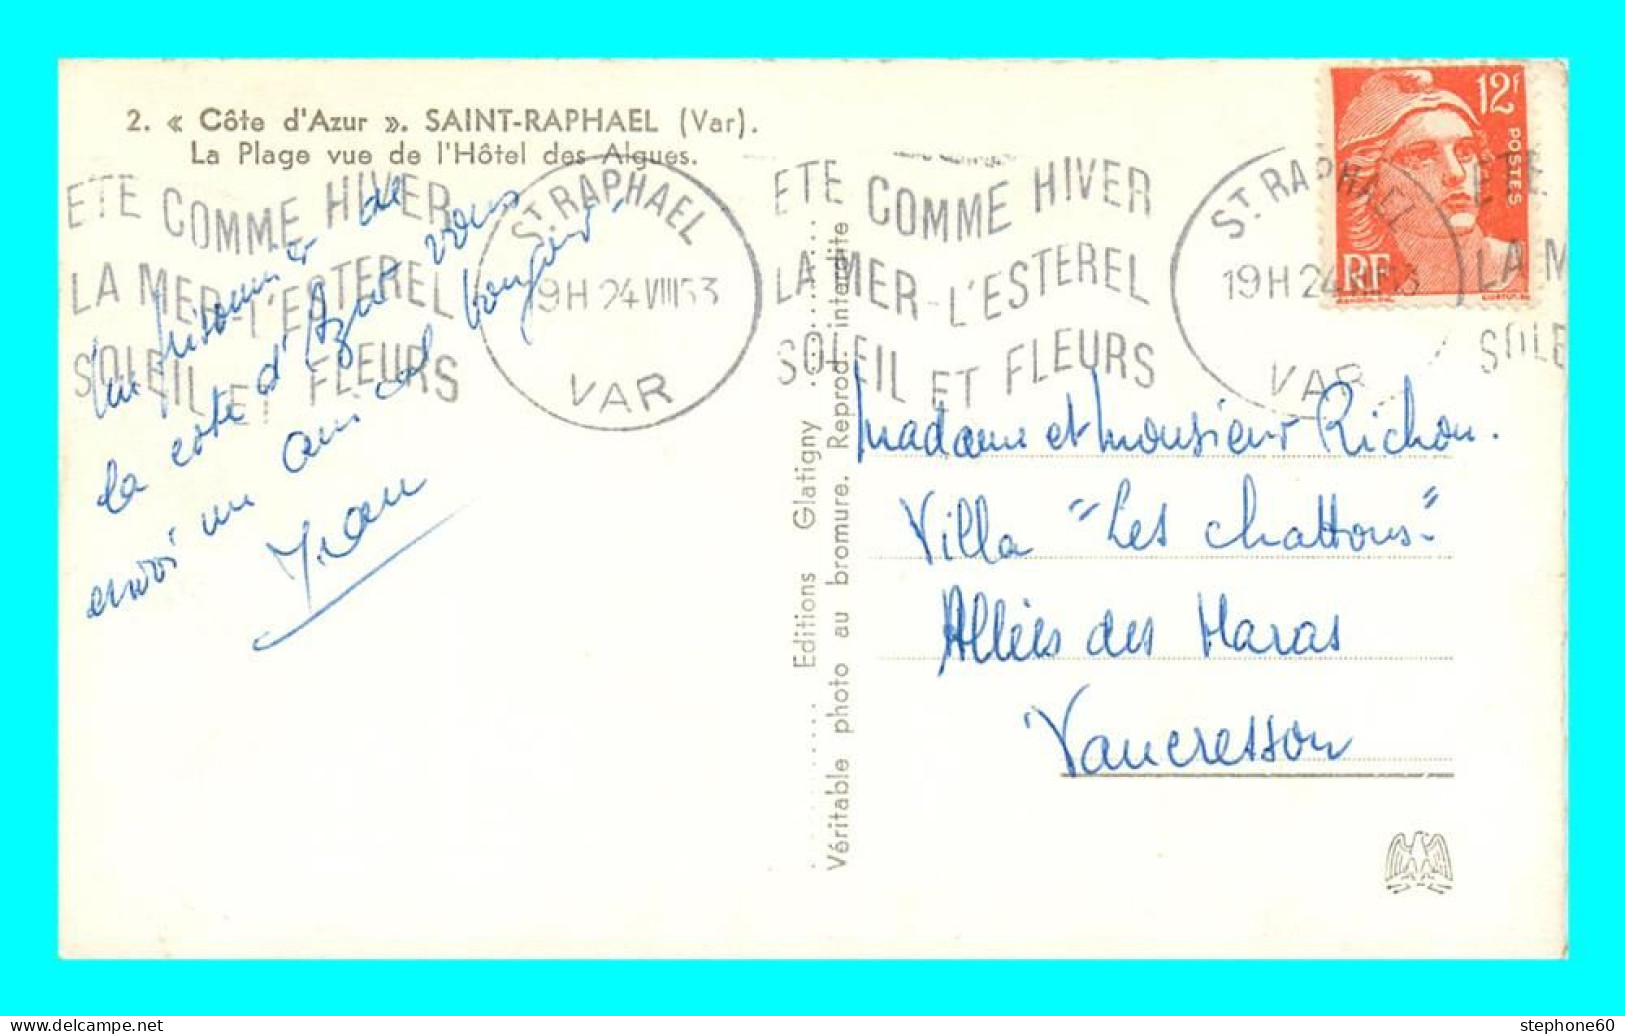 2. « Côte d'Azur ». SAINT-RAPHAEL (Var).
La Plage vue de l'Hôtel des Algues.
ETE COMME HIVER
LA MER-L'ESTEREL
SOLEIL ET FLEURS
ST. RAPHAEL
19H 24 VIII 53
VAR
ETE COMME HIVER
LA MER-L'ESTEREL
SOLEIL ET FLEURS
ST. RAPHAEL
19H 24 53
VAR
ETE
LA M
SOLE
12F
POSTES
RF
Un prisonnier de
la côte d'Azur vous
envoi un amical bonjour.
Jean
Editions Glatigny
Véritable photo au bromure. Reprod. interdite
Madame et Monsieur Richon.
Villa "Les Chattons"
Allées des Haras
Vaucresson
stephone60